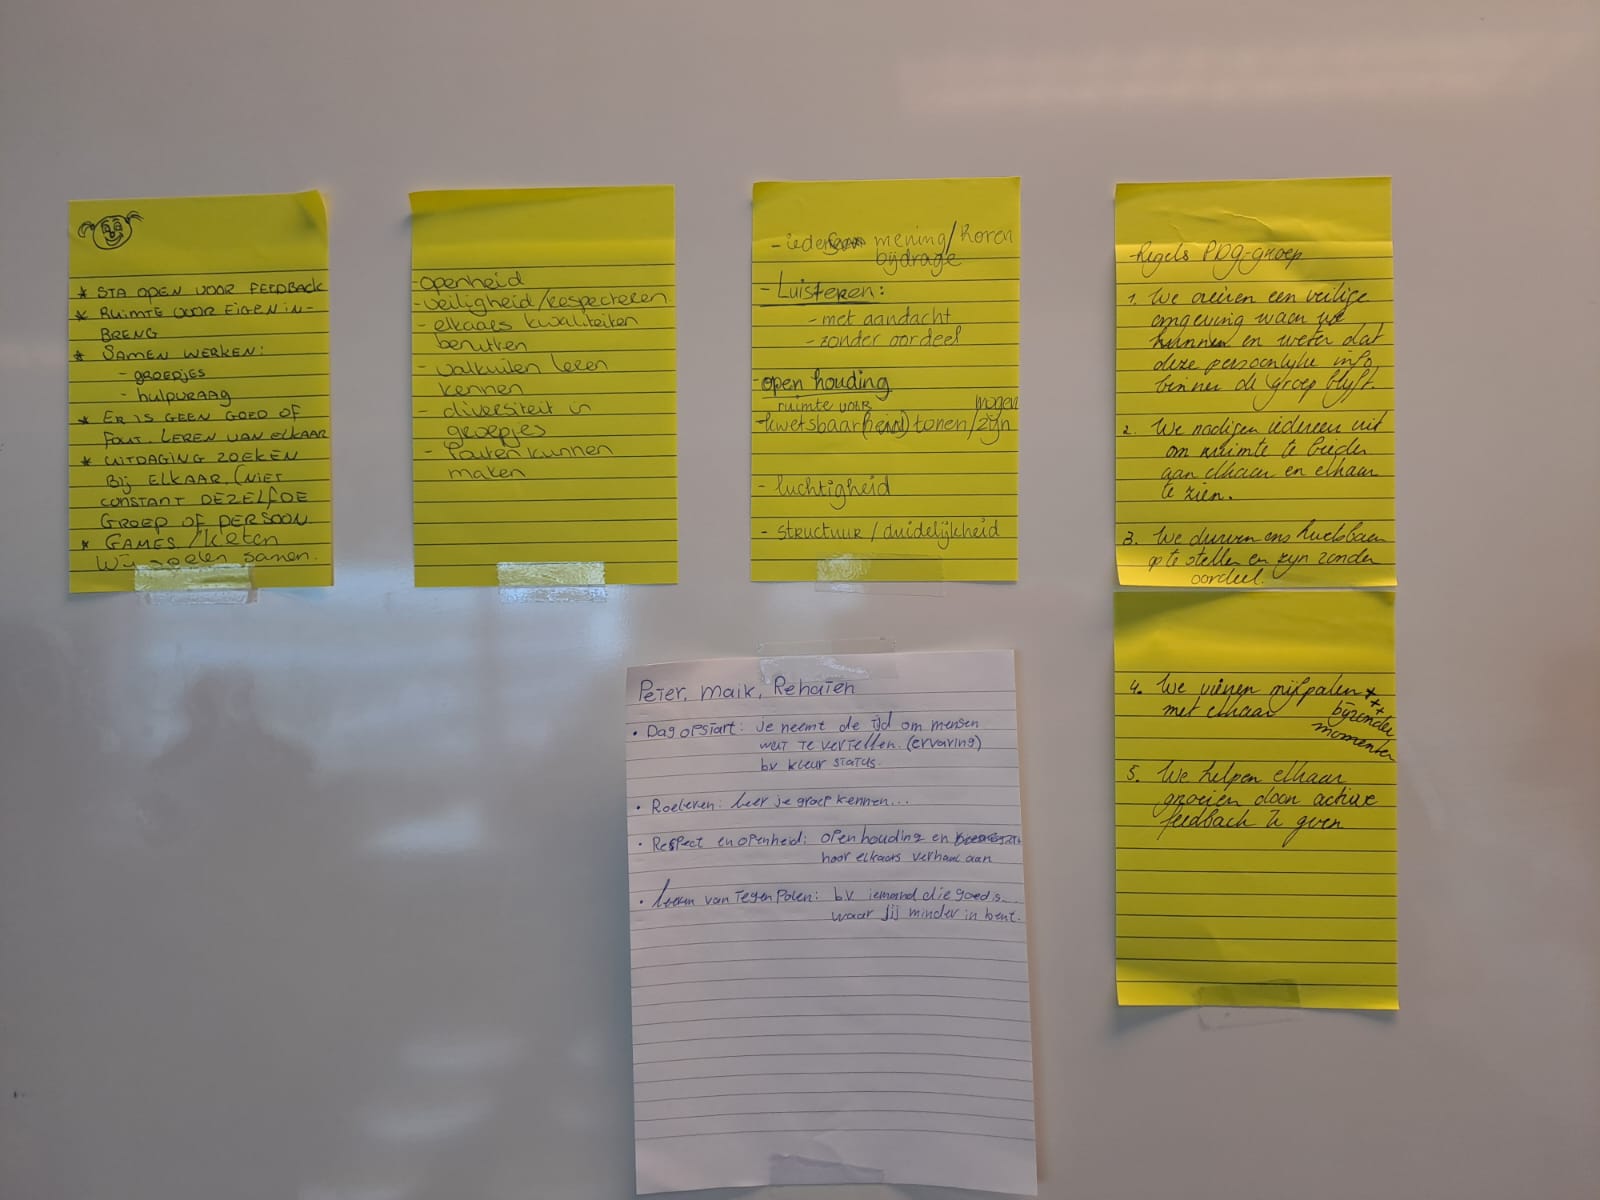 * STA OPEN VOOR FEEDBACK
* RUIMTE VOOR EIGEN IN-
BRENG
* SAMEN WERKEN:
- GROEPJES
- hulpvraag
* ER IS GEEN GOED OF
FOUT. LEREN VAN ELKAAR
* UITDAGING ZOEKEN
Bij ELKAAR. (NIET
CONSTANT DEZELFDE
GROEP OF PERSOON.
* GAMES / Keten
Wij spelen samen.
-openheid
-veiligheid/respecteren
- elkaars kwaliteiten
benutten
- valkuilen leren
kennen
- diversiteit in
groepjes
- fouten kunnen
maken
- iedereen mening/Horen
bijdrage
- Luisteren:
- met aandacht
- zonder oordeel
-open houding
ruimte voor mogen
-kwetsbaar(heid) tonen/zijn
- luchtigheid
- structuur / duidelijkheid
Regels PDG-groep
1. We creëren een veilige
omgeving waar we
kunnen en weten dat
deze persoonlijke info
binnen de groep blijft.
2. We nodigen iedereen uit
om ruimte te bieden
aan elkaar en elkaar
te zien.
3. We durven ons kwetsbaar
op te stellen en zijn zonder
oordeel.
4. We vieren mijlpalen *
met elkaar
** bijzonder
momenten
5. We helpen elkaar
groeien door actieve
feedback te geven
Peter, Maik,
• Dag opstart: je neemt de tijd om mensen
wat te vertellen. (ervaring)
bv kleur status.
• Rouleren: leer je groep kennen...
• Respect en openheid: open houding en
hoor elkaars verhaal aan
• leren van Tegen Polen: b.v. iemand die goed is..
waar jij minder in bent.